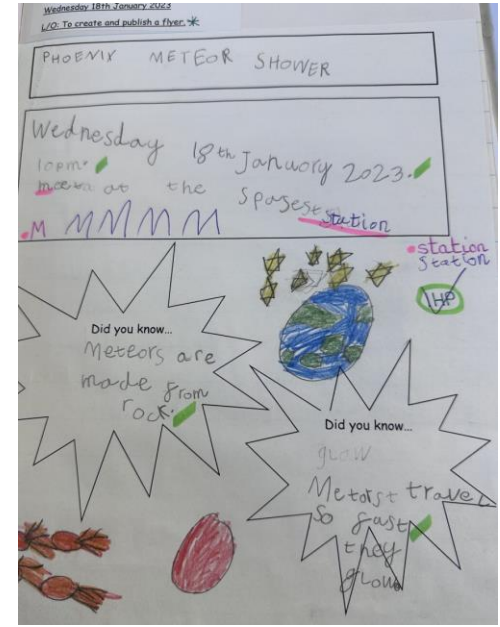 Wednesday 18th January 2023
L/O: To create and publish a flyer.
PHOENIX METEOR SHOWER
Wednesday 18th January 2023.
10pm.
at the spasest station
.M M M M M M
.station
station
1HP
Did you know...
Meteors are
made from
rock.
Did you know...
glow
Metorst travel
so fast
they
glow